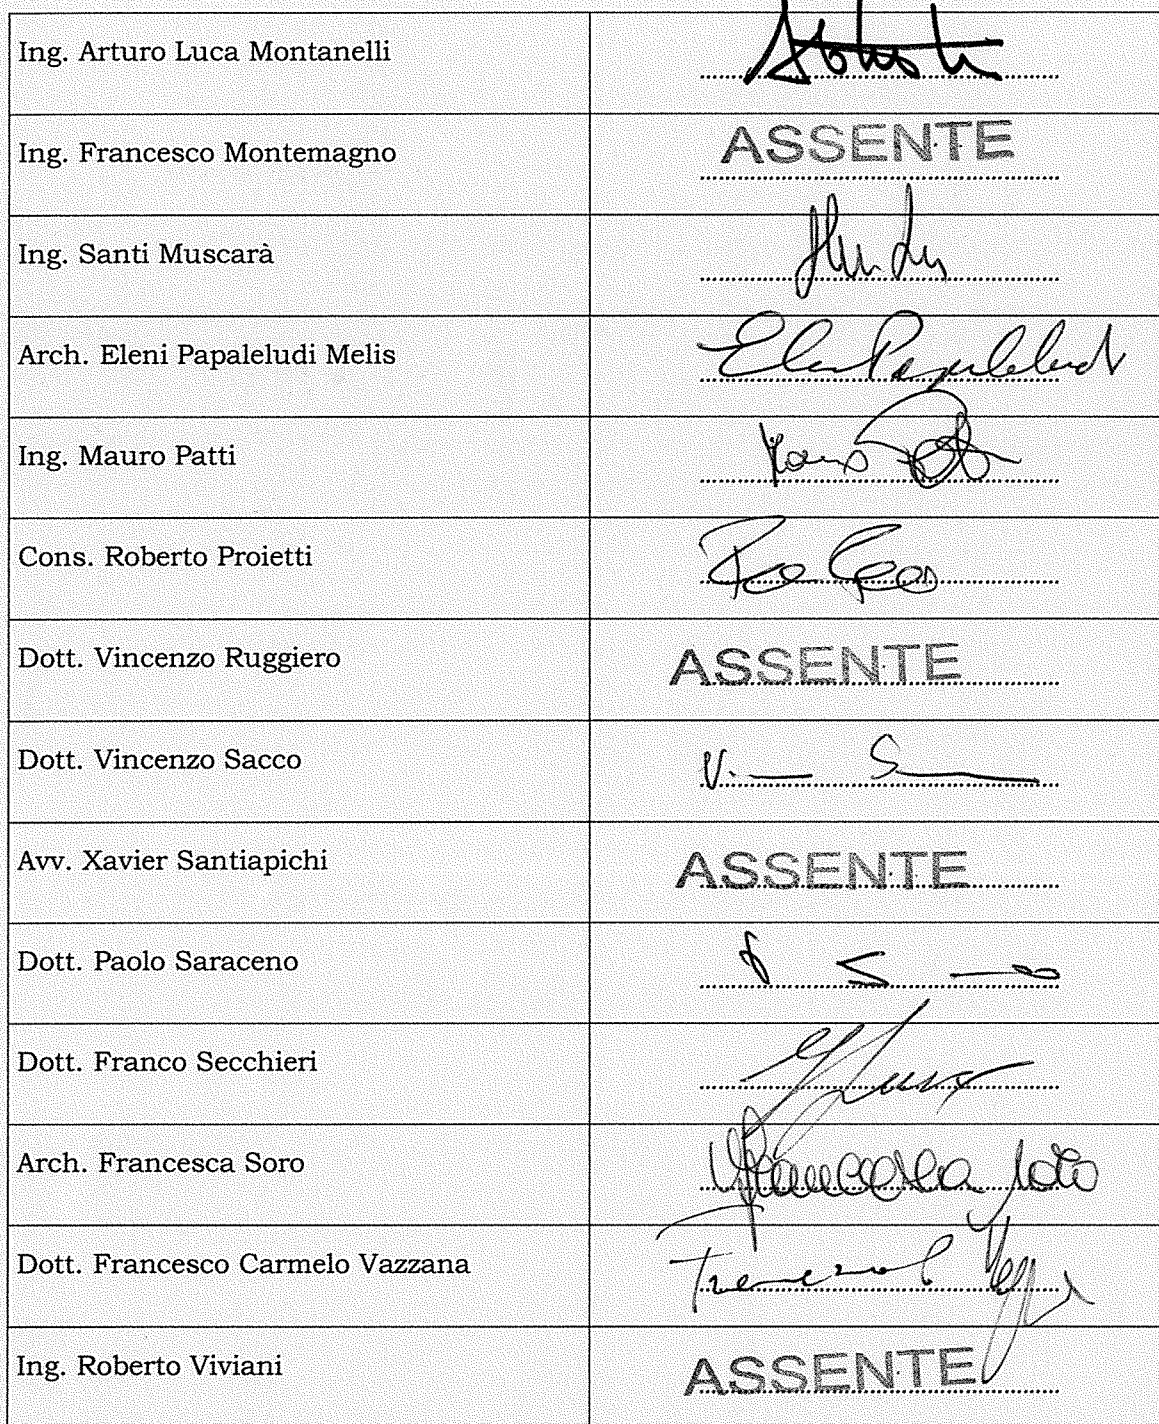 Ing. Arturo Luca Montanelli
Ing. Francesco Montemagno ASSENTE
Ing. Santi Muscarà
Arch. Eleni Papaleludi Melis
Ing. Mauro Patti
Cons. Roberto Proietti
Dott. Vincenzo Ruggiero ASSENTE
Dott. Vincenzo Sacco
Avv. Xavier Santiapichi ASSENTE
Dott. Paolo Saraceno
Dott. Franco Secchieri
Arch. Francesca Soro Francesca Soro
Dott. Francesco Carmelo Vazzana
Ing. Roberto Viviani ASSENTE